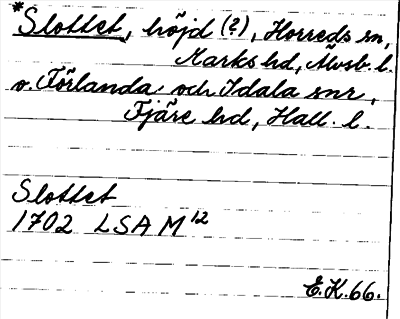 *Slottet, höjd (?), Horreds sn,
Marks hd, Älvsb. l.
o. Förlanda och Idala snr,
Fjäre hd, Hall. l.
Slottet
1702 LSA M 12
E.K.66.